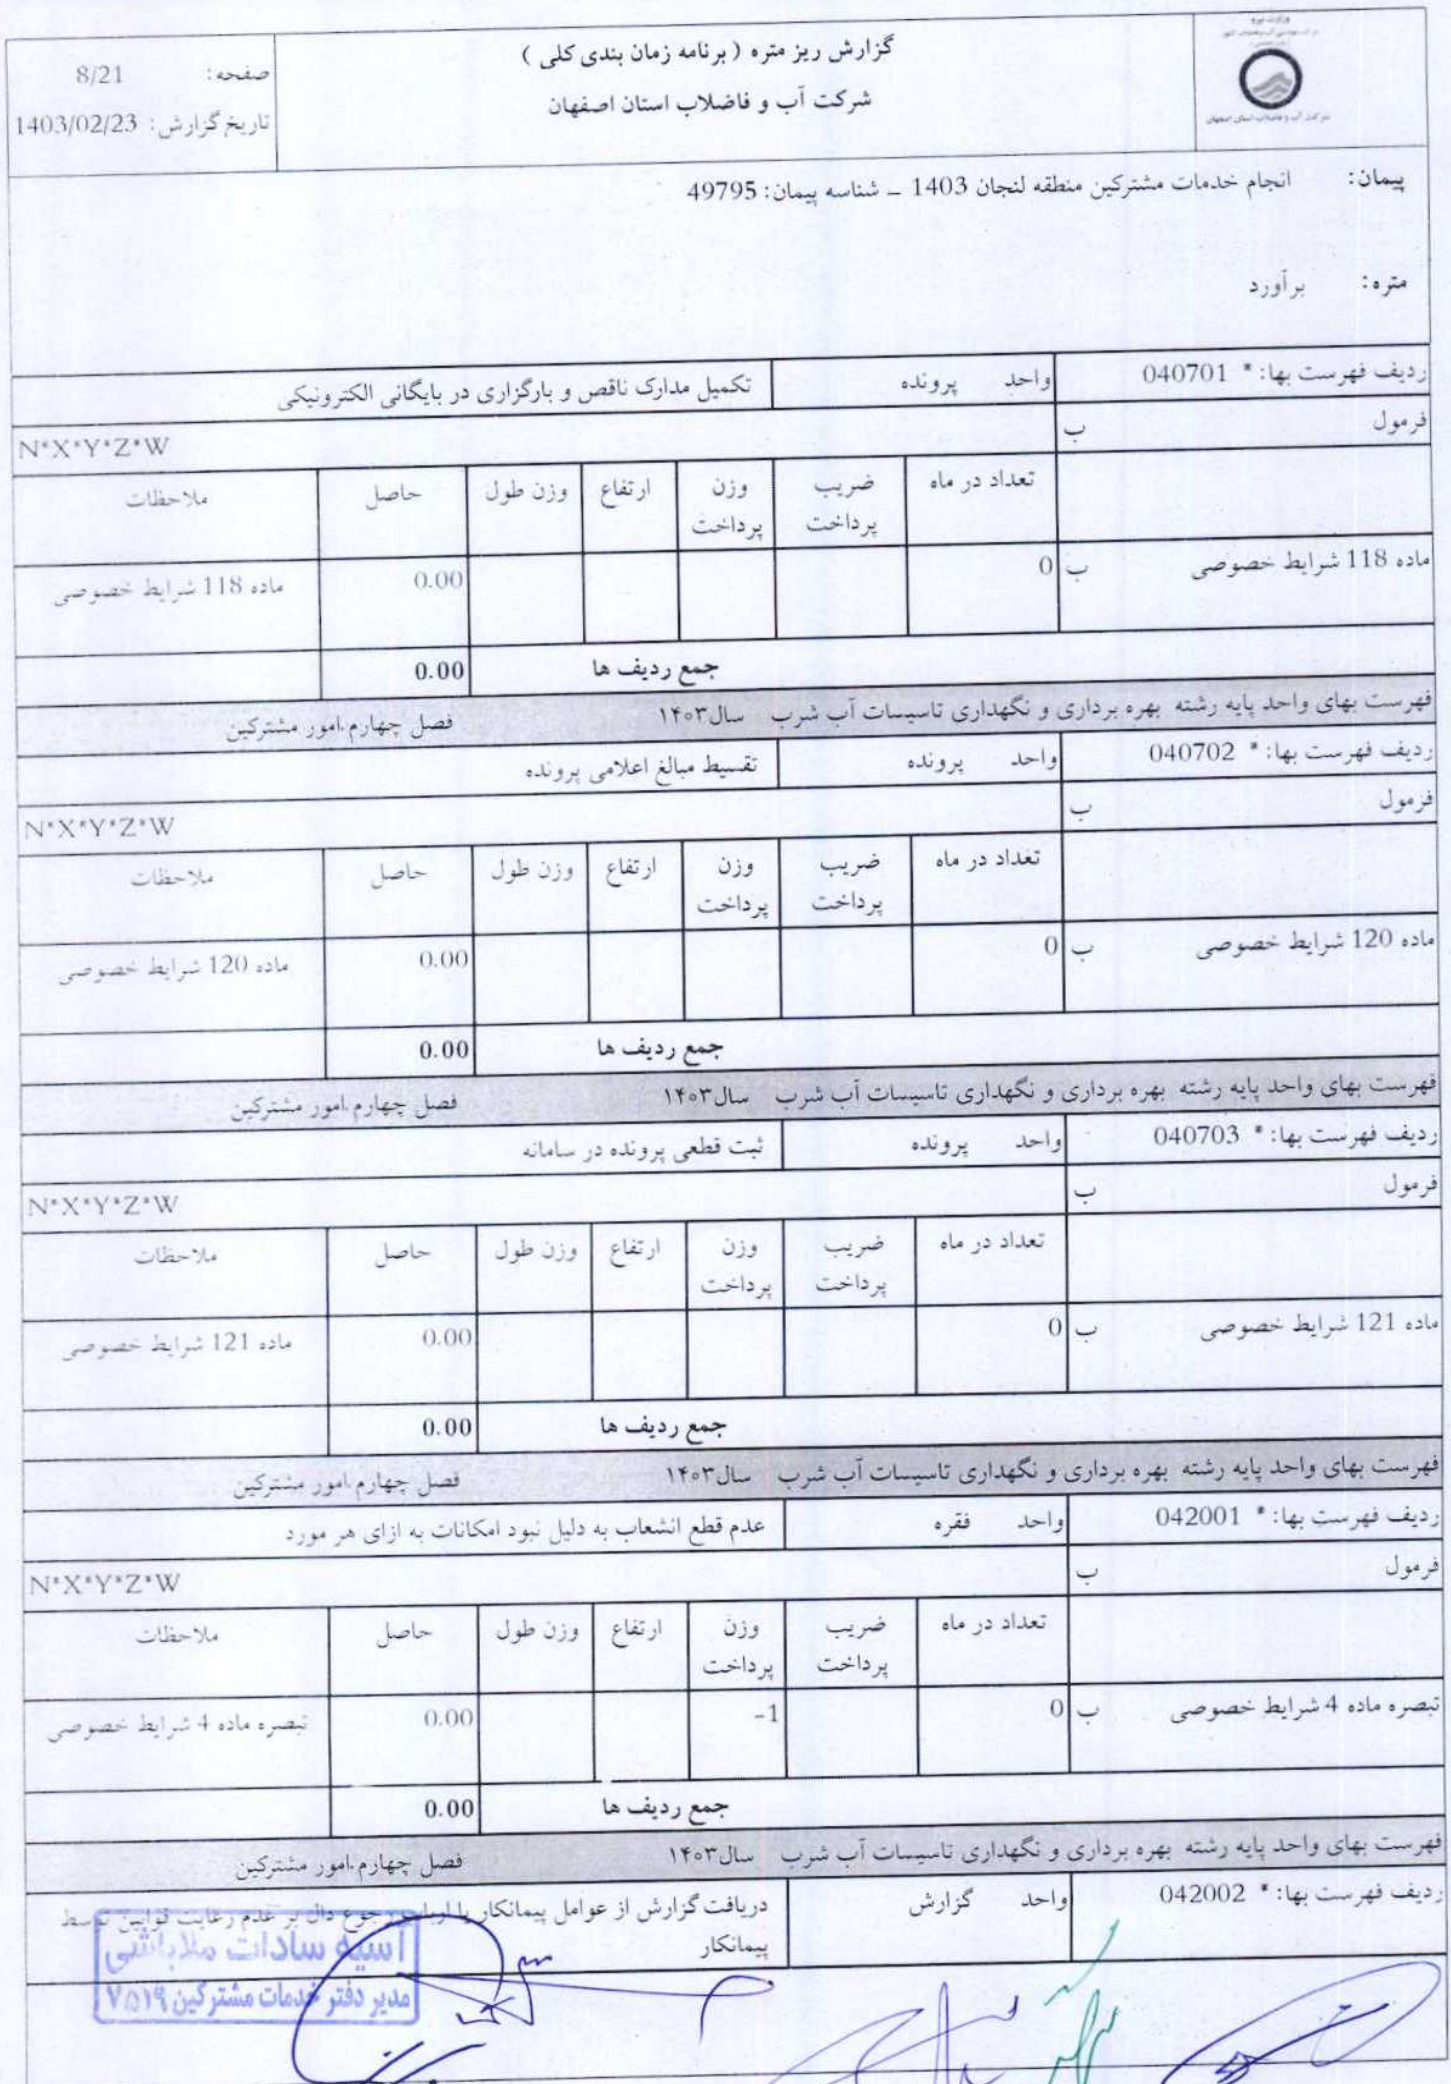 وزارت نیرو
شرکت آب و فاضلاب استان اصفهان
گزارش ریز متره ( برنامه زمان بندی کلی )
شرکت آب و فاضلاب استان اصفهان
صفحه: 8/21
تاریخ گزارش: 1403/02/23
پیمان: انجام خدمات مشترکین منطقه لنجان 1403 _ شناسه پیمان: 49795
متره: برآورد
ردیف فهرست بها: * 040701 واحد پرونده تکمیل مدارک ناقص و بارگزاری در بایگانی الکترونیکی
فرمول ب N*X*Y*Z*W
تعداد در ماه ضریب پرداخت وزن پرداخت ارتفاع وزن طول حاصل ملاحظات
ماده 118 شرایط خصوصی ب 0 0.00 ماده 118 شرایط خصوصی
جمع ردیف ها 0.00
فهرست بهای واحد پایه رشته بهره برداری و نگهداری تاسیسات آب شرب سال۱۴۰۳ فصل چهارم.امور مشترکین
ردیف فهرست بها: * 040702 واحد پرونده تقسیط مبالغ اعلامی پرونده
فرمول ب N*X*Y*Z*W
تعداد در ماه ضریب پرداخت وزن پرداخت ارتفاع وزن طول حاصل ملاحظات
ماده 120 شرایط خصوصی ب 0 0.00 ماده 120 شرایط خصوصی
جمع ردیف ها 0.00
فهرست بهای واحد پایه رشته بهره برداری و نگهداری تاسیسات آب شرب سال۱۴۰۳ فصل چهارم.امور مشترکین
ردیف فهرست بها: * 040703 واحد پرونده ثبت قطعی پرونده در سامانه
فرمول ب N*X*Y*Z*W
تعداد در ماه ضریب پرداخت وزن پرداخت ارتفاع وزن طول حاصل ملاحظات
ماده 121 شرایط خصوصی ب 0 0.00 ماده 121 شرایط خصوصی
جمع ردیف ها 0.00
فهرست بهای واحد پایه رشته بهره برداری و نگهداری تاسیسات آب شرب سال۱۴۰۳ فصل چهارم.امور مشترکین
ردیف فهرست بها: * 042001 واحد فقره عدم قطع انشعاب به دلیل نبود امکانات به ازای هر مورد
فرمول ب N*X*Y*Z*W
تعداد در ماه ضریب پرداخت وزن پرداخت ارتفاع وزن طول حاصل ملاحظات
تبصره ماده 4 شرایط خصوصی ب 0 -1 0.00 تبصره ماده 4 شرایط خصوصی
جمع ردیف ها 0.00
فهرست بهای واحد پایه رشته بهره برداری و نگهداری تاسیسات آب شرب سال۱۴۰۳ فصل چهارم.امور مشترکین
ردیف فهرست بها: * 042002 واحد گزارش دریافت گزارش از عوامل پیمانکار یا ارباب رجوع دال بر عدم رعایت قوانین توسط
پیمانکار
آسیه سادات ملاباشی
مدیر دفتر خدمات مشترکین ۷۵۱۹